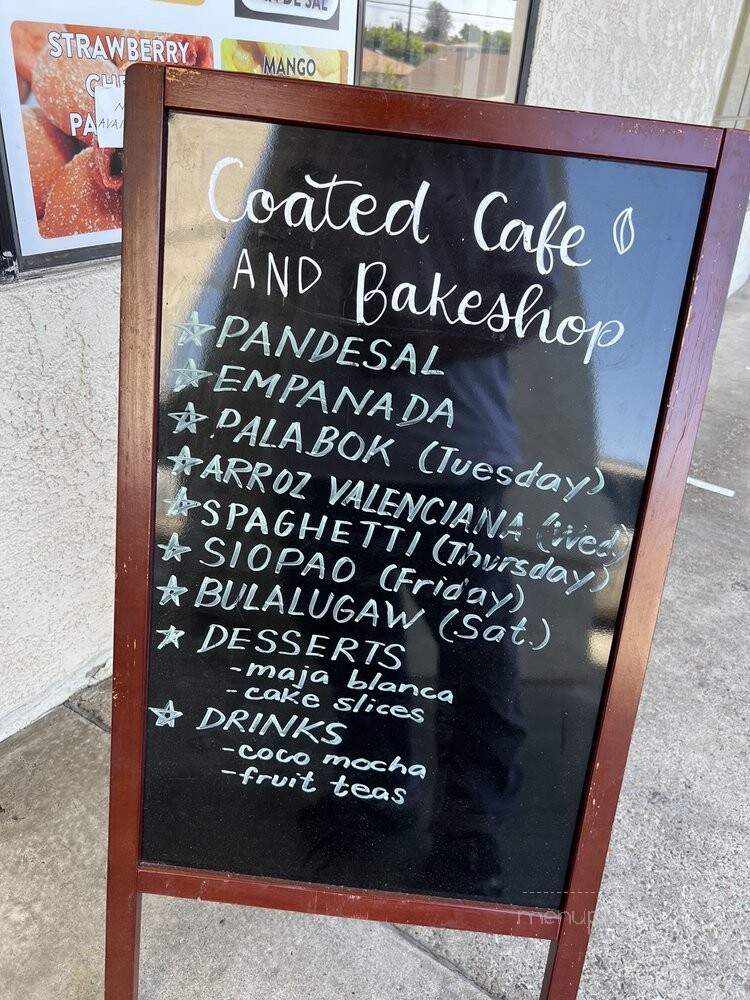 DE SAL
STRAWBERRY
MANGO
Coated Cafe
AND Bakeshop
☆ PANDESAL
☆ EMPANADA
☆ PALABOK (Tuesday)
☆ ARROZ VALENCIANA (Wed)
☆ SPAGHETTI (Thursday)
☆ SIOPAO (Friday)
☆ BULALUGAW (Sat.)
☆ DESSERTS
- maja blanca
- cake slices
☆ DRINKS
- coco mocha
- fruit teas